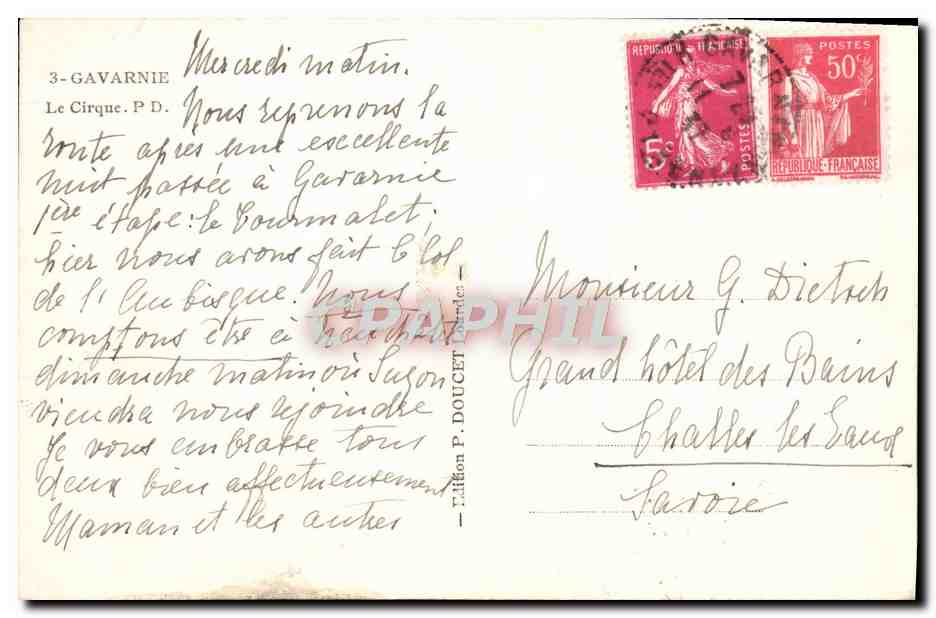 3 - GAVARNIE
Le Cirque. P D.
Mercredi matin.
Nous reprenons la
route après une excellente
nuit passée à Gavarnie
1ère étape: le Tourmalet;
hier nous avons fait le Col
de l'Aubisque. Nous
comptons être à
dimanche matin où Suzon
viendra nous rejoindre
Je vous embrasse tous
deux bien affectueusement
Maman et les autres
— Edition P. DOUCET Lourdes —
REPUBLIQUE FRANÇAISE
5c
POSTES
POSTES
50c
REPUBLIQUE-FRANÇAISE
CPAPHIL
Monsieur G. Dietsch
Grand hôtel des Bains
Challes les Eaux
Savoie